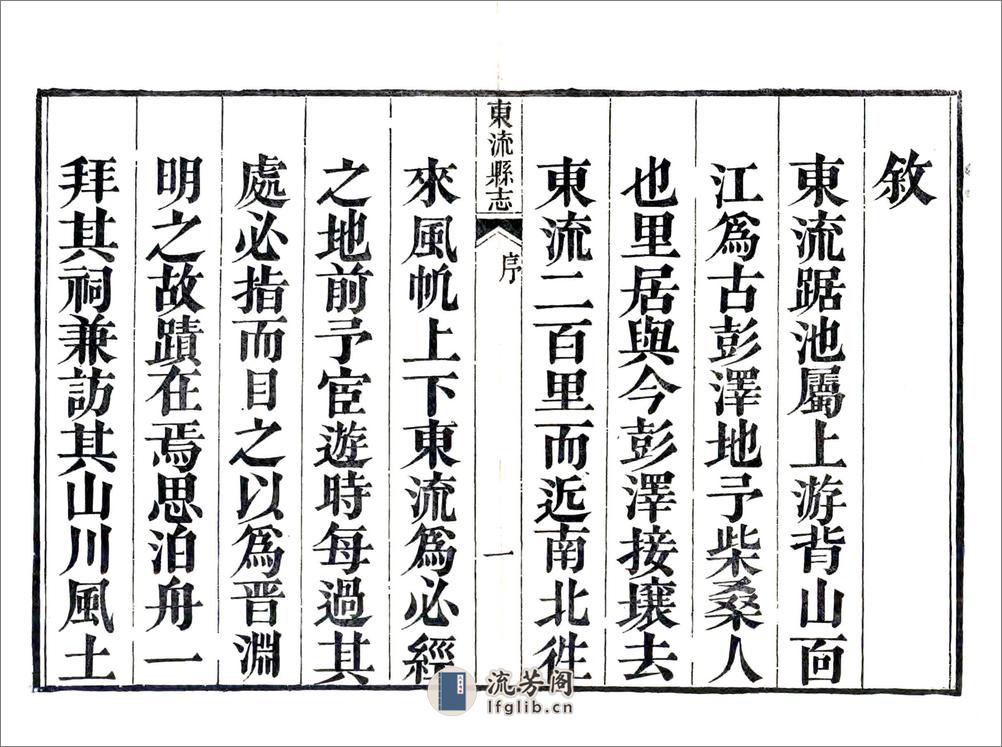 敘
東流踞池屬上游背山面
江爲古彭澤地予柴桑人
也里居與今彭澤接壤去
東流二百里而近南北徃
東流縣志
序
一
來風帆上下東流爲必經
之地前予宦遊時每過其
處必指而目之以爲晋淵
明之故蹟在焉思泊舟一
拜其祠兼訪其山川風土
流芳阁
lfglib.cn